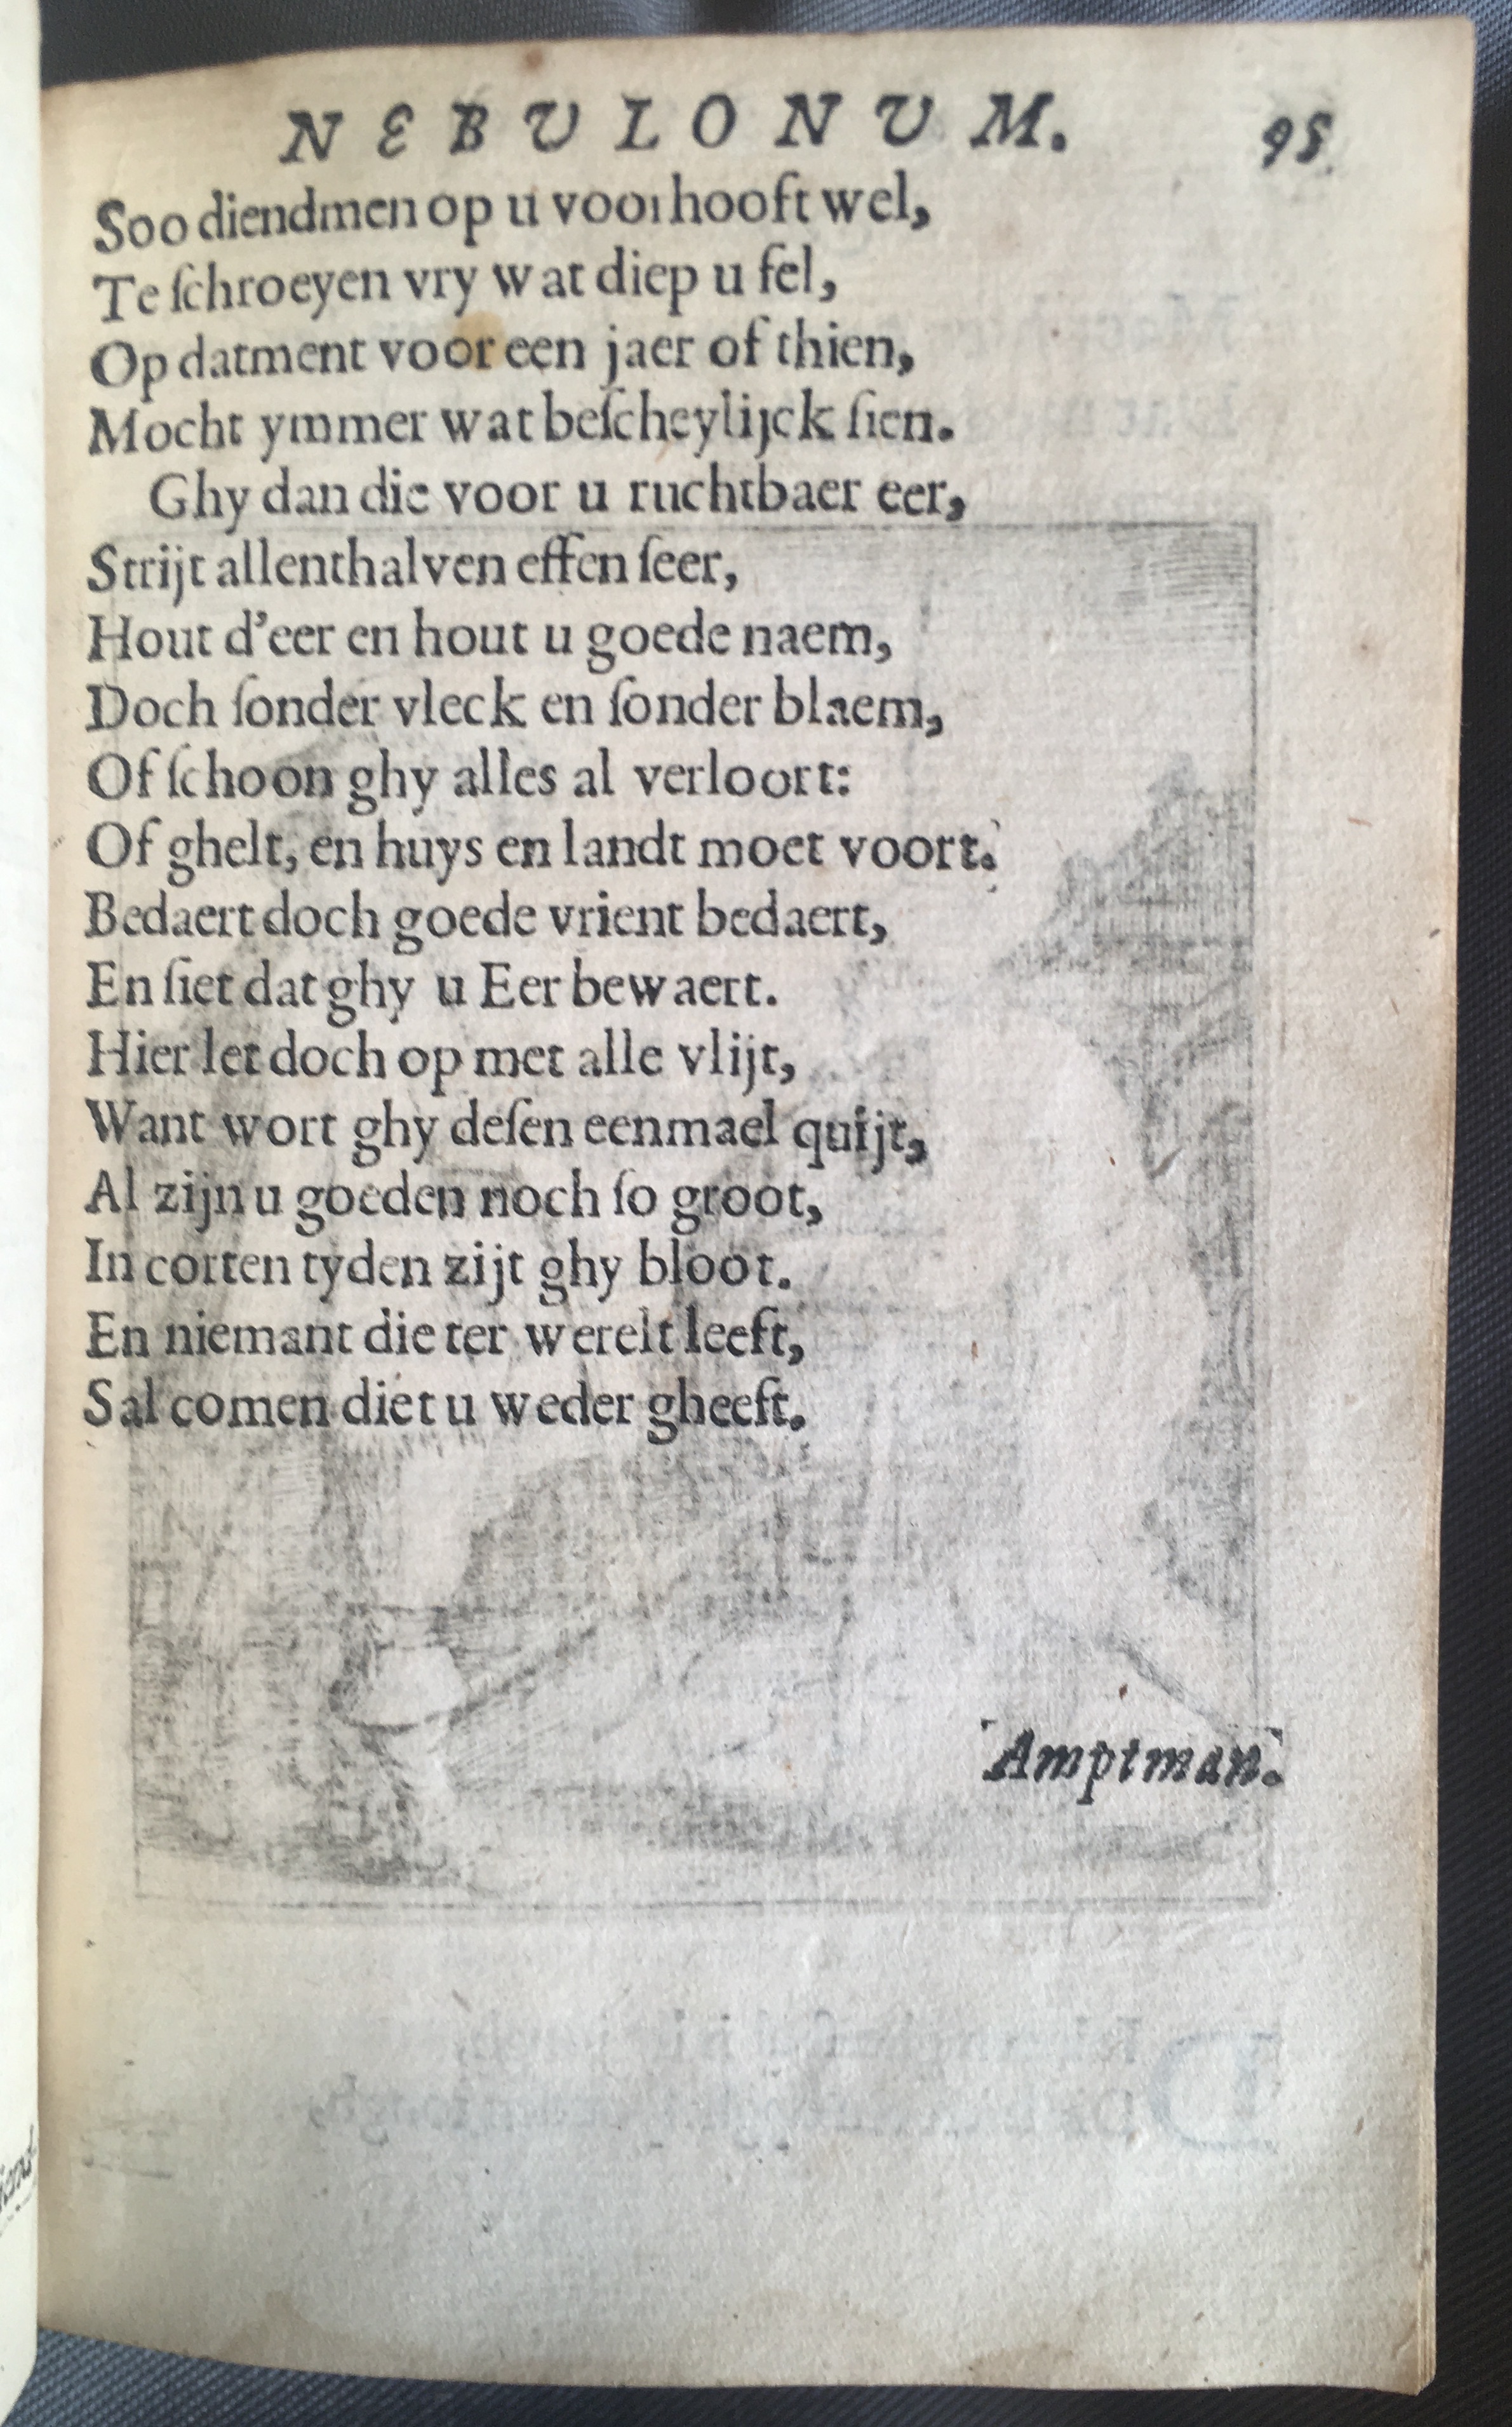 NEBULONUM. 95
Soo diendmen op u voorhooft wel,
Te ſchroeyen vry wat diep u fel,
Op datment voor een jaer of thien,
Mocht ymmer wat beſcheylijck ſien.
Ghy dan die voor u ruchtbaer eer,
Strijt allenthalven effen ſeer,
Hout d'eer en hout u goede naem,
Doch ſonder vleck en ſonder blaem,
Of ſchoon ghy alles al verloort:
Of ghelt, en huys en landt moet voort.
Bedaert doch goede vrient bedaert,
En ſiet dat ghy u Eer bewaert.
Hier let doch op met alle vlijt,
Want wort ghy deſen eenmael quijt,
Al zijn u goeden noch ſo groot,
In corten tyden zijt ghy bloot.
En niemant die ter werelt leeft,
Sal comen diet u weder gheeft.
Amptman.